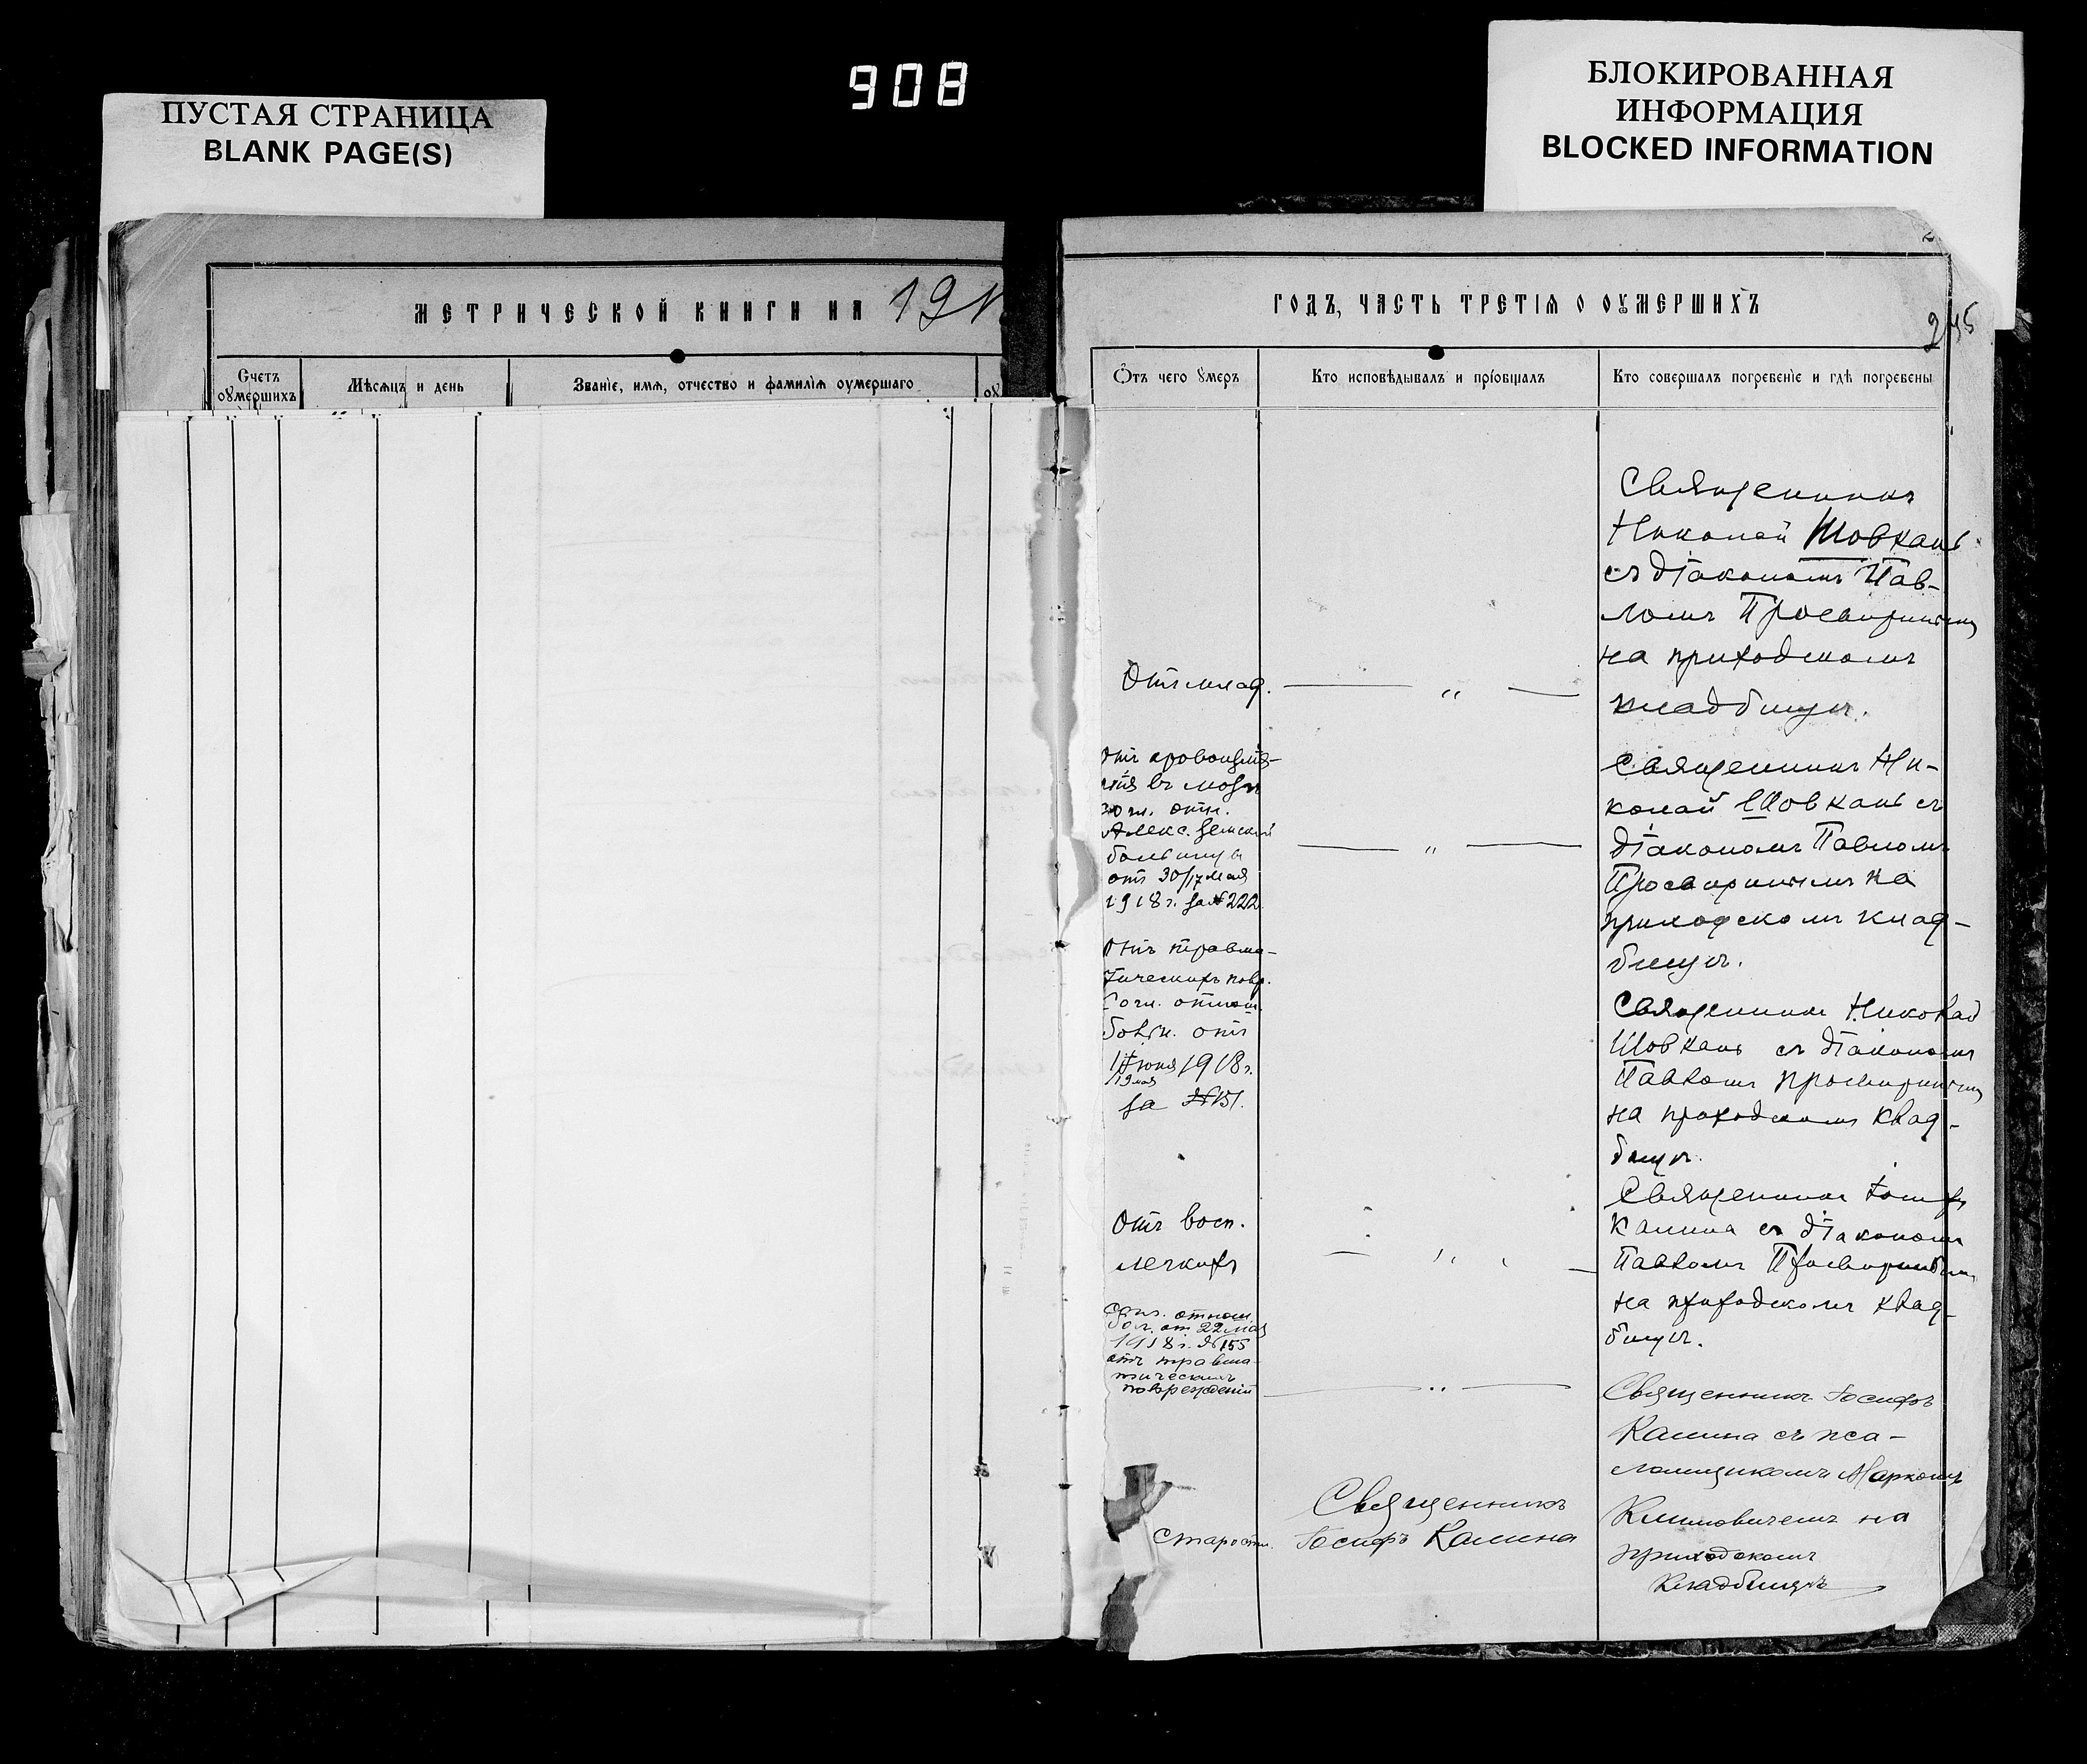 908
ПУСТАЯ СТРАНИЦА
BLANK PAGE(S)
БЛОКИРОВАННАЯ
ИНФОРМАЦИЯ
BLOCKED INFORMATION
МЕТРИЧЕСКОЙ КНИГИ НА 191
Счетъ
оумершихъ
Мѣсяцъ и день
Званіе, имя, отчество и фамилія оумершаго
ГОДЪ, ЧАСТЬ ТРЕТІЯ О ОУМЕРШИХЪ
Отъ чего умеръ
Кто исповѣдывалъ и пріобщалъ
Кто совершалъ погребеніе и гдѣ погребены
Отъ млад. — „ —
Священникъ
Николай Шовкань
съ діакономъ Пав-
ломъ
на приходскомъ
кладбищѣ.
Отъ
въ мозгъ
отн.
Алекс. Земской
больницы
отъ 30/17 Мая
1918 г. за № 222. — „ —
Священникъ Ни-
колай Шовкань съ
діакономъ Павломъ
на
приходскомъ клад-
бищѣ.
Отъ травма-
тическихъ повр.
Согл. отнош.
больн. отъ
1 Іюня 1918 г.
19 мая
за № 151.
Священникъ Николай
Шовкань съ діакономъ
Павломъ
на приходскомъ клад-
бищѣ.
Отъ восп.
легкихъ — „ —
Священникъ Іосифъ
Калина съ діакономъ
Павломъ
на приходскомъ клад-
бищѣ.
отнош.
бол. от 22 мая
1918 г. № 155
отъ травма-
тическихъ
поврежденій — „ —
Священникъ Іосифъ
Калина съ пса-
ломщикомъ Маркомъ
Климовичемъ на
приходскомъ
кладбищѣ
Старости.
Священникъ
Іосифъ Калина